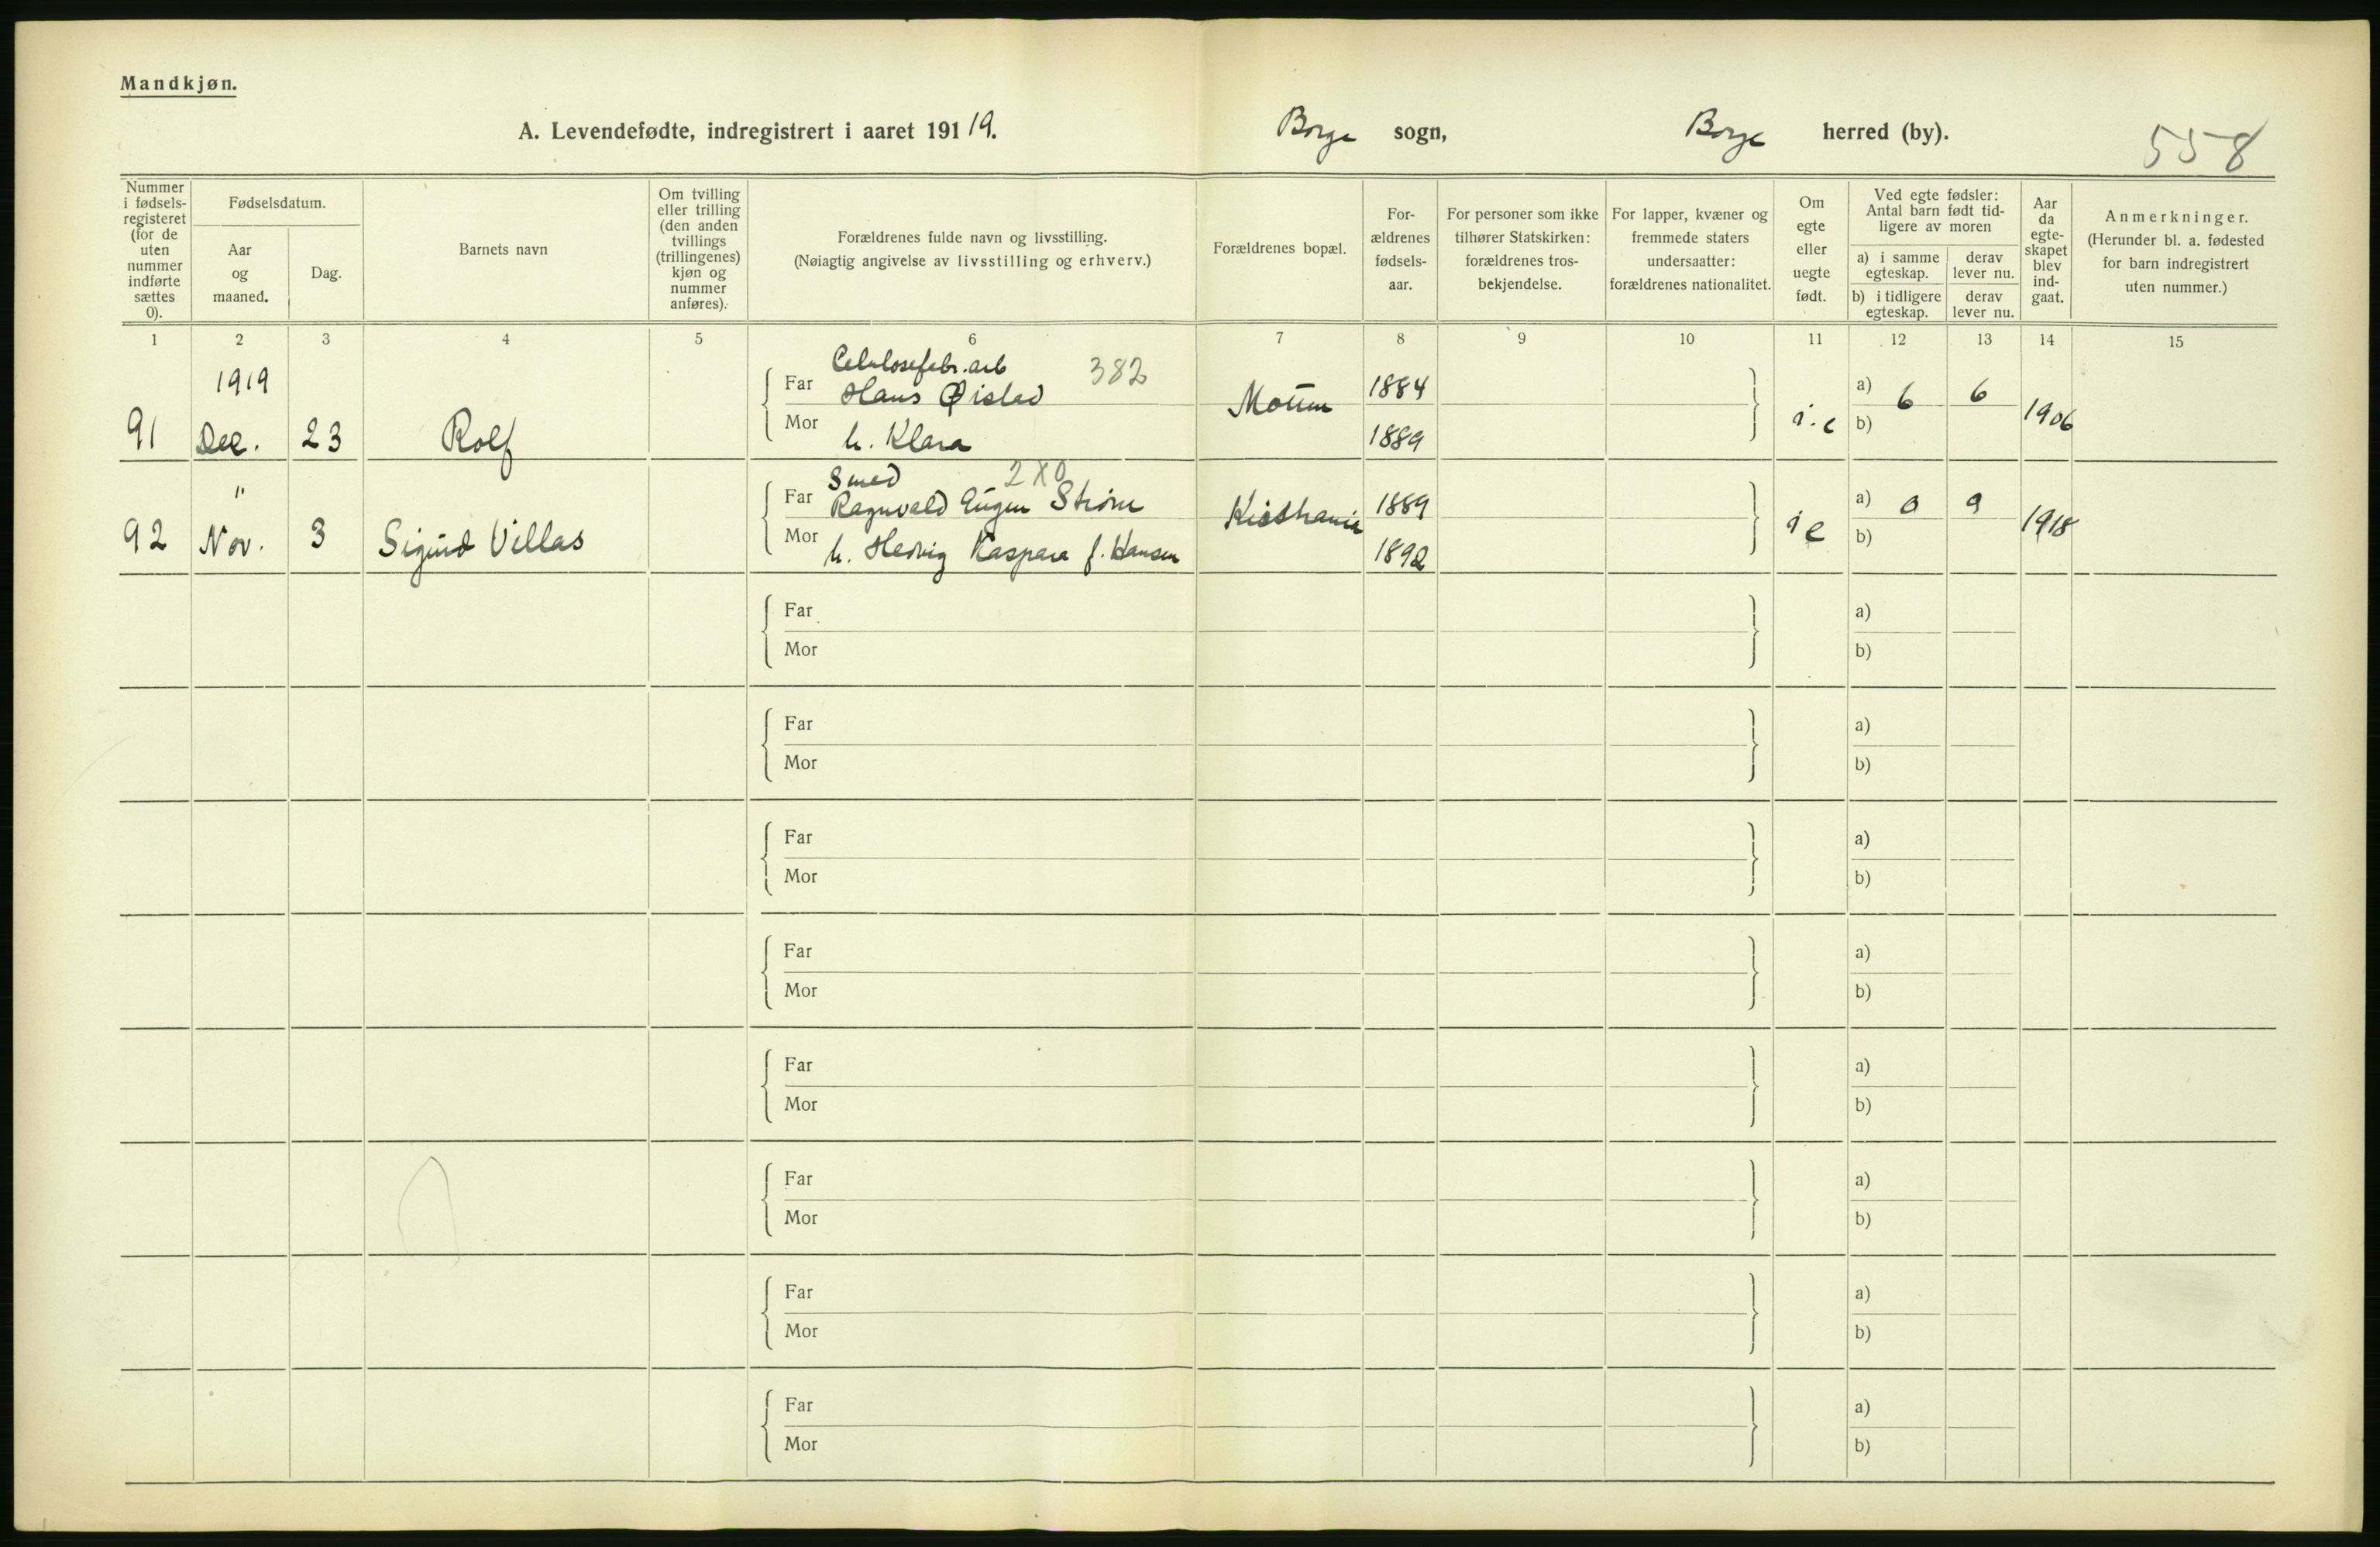 Mandkjøn.
A. Levendefødte, indregistrert i aaret 191 19. Borge sogn, Borge herred (by).
558
Nummer i fødsels-registeret (for de uten nummer indførte sættes 0).
Fødselsdatum.
Aar og maaned.
Dag.
Barnets navn
Om tvilling eller trilling (den anden tvillings (trillingenes) kjøn og nummer anføres).
Forældrenes fulde navn og livsstilling.
(Nøiagtig angivelse av livsstilling og erhverv.)
Forældrenes bopæl.
For-ældrenes fødsels-aar.
For personer som ikke tilhører Statskirken: forældrenes tros-bekjendelse.
For lapper, kvæner og fremmede staters undersaatter: forældrenes nationalitet.
Om egte eller uegte født.
Ved egte fødsler: Antal barn født tid-ligere av moren
a) i samme egteskap.
derav lever nu.
b) i tidligere egteskap.
derav lever nu.
Aar da egte-skapet blev ind-gaat.
Anmerkninger.
(Herunder bl. a. fødested for barn indregistrert uten nummer.)
1 2 3 4 5 6 7 8 9 10 11 12 13 14 15
1919 Celulosefabr. arb 382
Far Hans Øislad 1884 a) 6 6
91 Dec. 23 Rolf Mor h. Klara Moum 1889 i.e b) 1906
" Smed 2X0
Far Ragnvald Eugen Strøm 1889 a) 0 0
92 Nov. 3 Sigurd Villas Mor h. Hedvig Kaspara f. Hansen Kristiania 1892 i e b) 1918
Far a)
Mor b)
Far a)
Mor b)
Far a)
Mor b)
Far a)
Mor b)
Far a)
Mor b)
Far a)
Mor b)
Far a)
Mor b)
Far a)
Mor b)